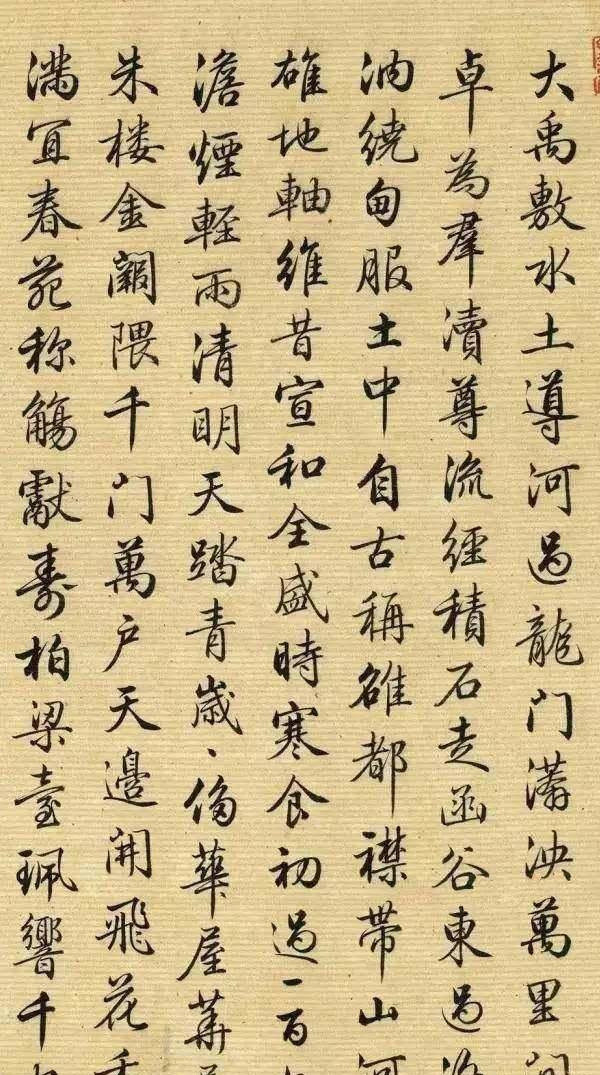 大禹敷水土導河過龍门漭泱萬里
卓為羣瀆尊流经積石走函谷東過
汭繞甸服土中自古稱雄都襟带山河
雄地軸維昔宣和全盛時寒食初過一百
澹煙輕雨清明天踏青歲、侈華屋
朱楼金闕隈千门萬户天邊開飛花
滿宜春苑称觴獻壽柏梁臺珮響千